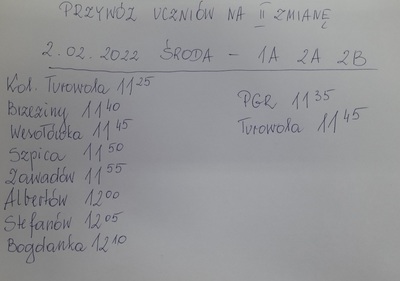 PRZYWÓZ UCZNIÓW NA II ZMIANĘ
2.02.2022 ŚRODA - 1A 2A 2B
Kol. Turowola 11 25
Brzeziny 11 40
Wesołówka 11 45
Szpica 11 50
Zawadów 11 55
Albertów 12 00
Stefanów 12 05
Bogdanka 12 10
PGR 11 35
Turowola 11 45